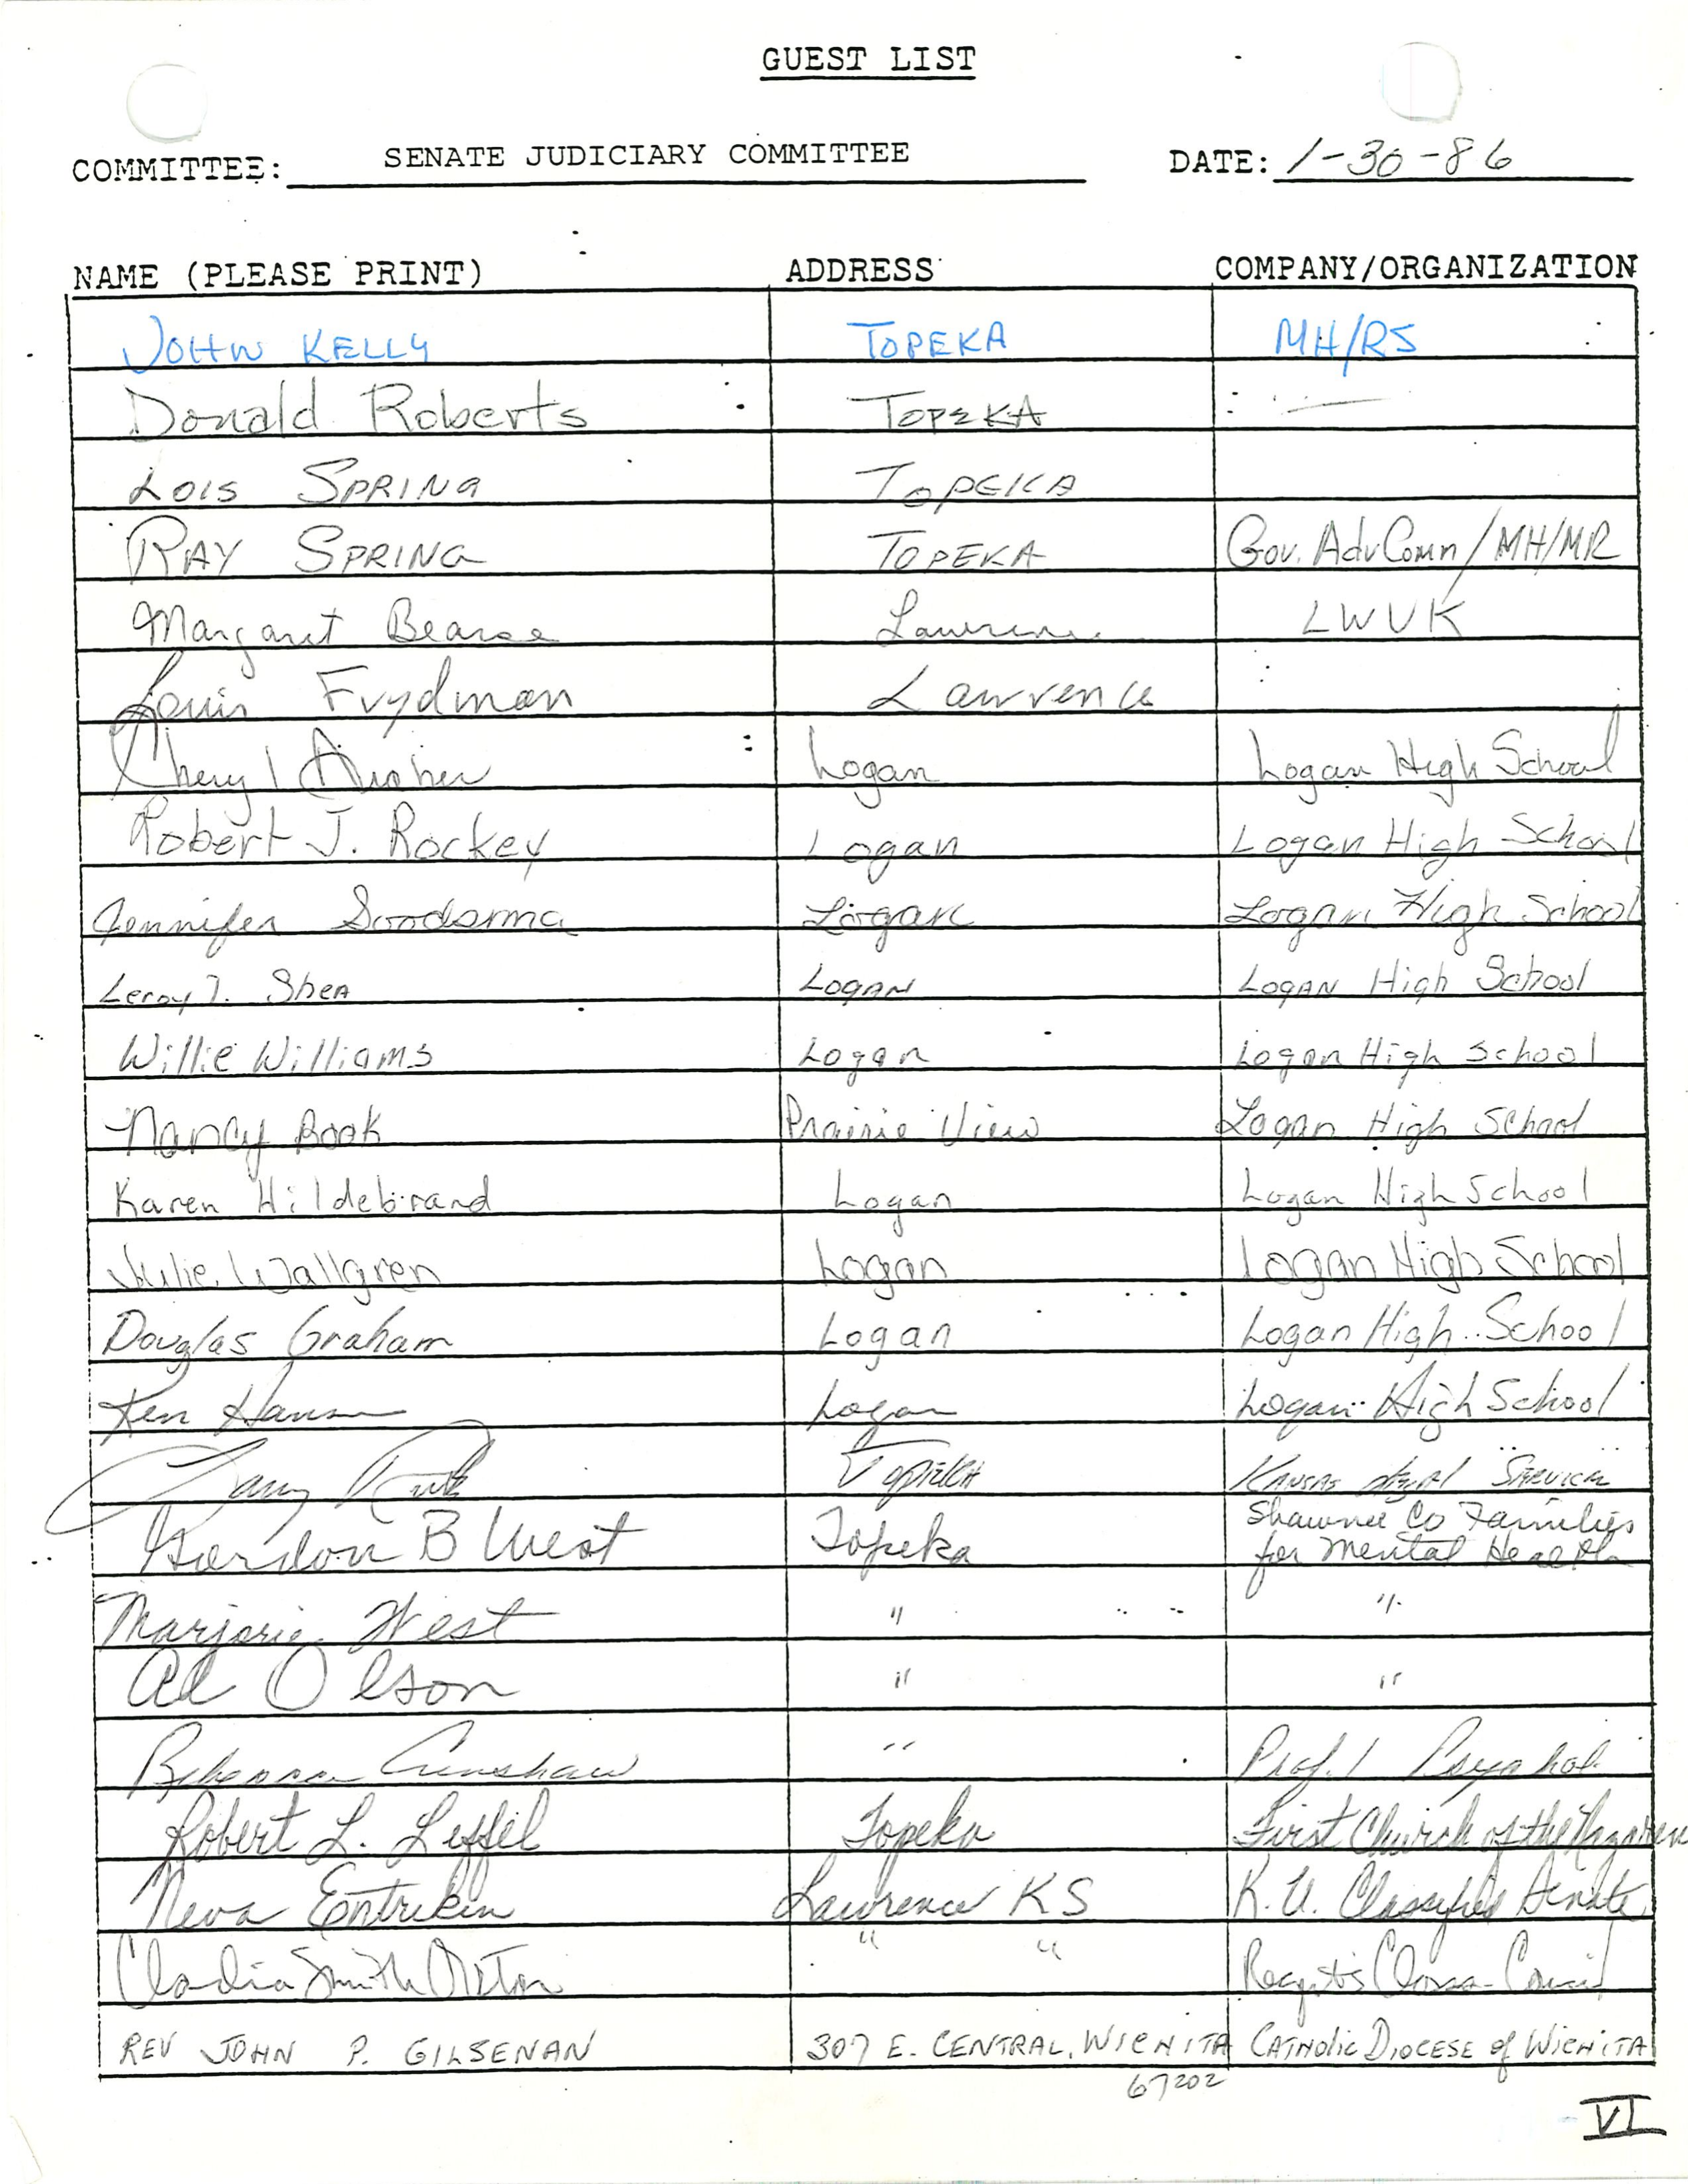 GUEST LIST
COMMITTEE: SENATE JUDICIARY COMMITTEE DATE: 1-30-86
NAME (PLEASE PRINT) ADDRESS COMPANY/ORGANIZATION
JOHN KELLY TOPEKA MH/RS
Donald Roberts TOPEKA —
LOIS SPRING TOPEKA
RAY SPRING TOPEKA Gov. Adv Comm/MH/MR
Margaret Bearse Lawrence LWVK
Louis Frydman Lawrence
Cheryl Logan Logan High School
Robert J. Rockey Logan Logan High School
Jennifer Logan Logan High School
Leroy J. Shea Logan Logan High School
Willie Williams Logan Logan High School
Nancy Book Prairie View Logan High School
Karen Hildebrand Logan Logan High School
Julie Wallgren Logan Logan High School
Douglas Graham Logan Logan High School
Ken Hansen Logan Logan High School
Topeka Kansas Legal Services
Gordon B West Topeka Shawnee Co Families
for Mental Health
Marjorie West " "
Al Olson " "
Crenshaw "
Robert L. Leffel Topeka First Church of the Nazarene
Neva Entrikin Lawrence KS K.U. Classified Senate
Smith " "
REV JOHN P. GILSENAN 307 E. CENTRAL, WICHITA CATHOLIC DIOCESE of WICHITA
67202
VI